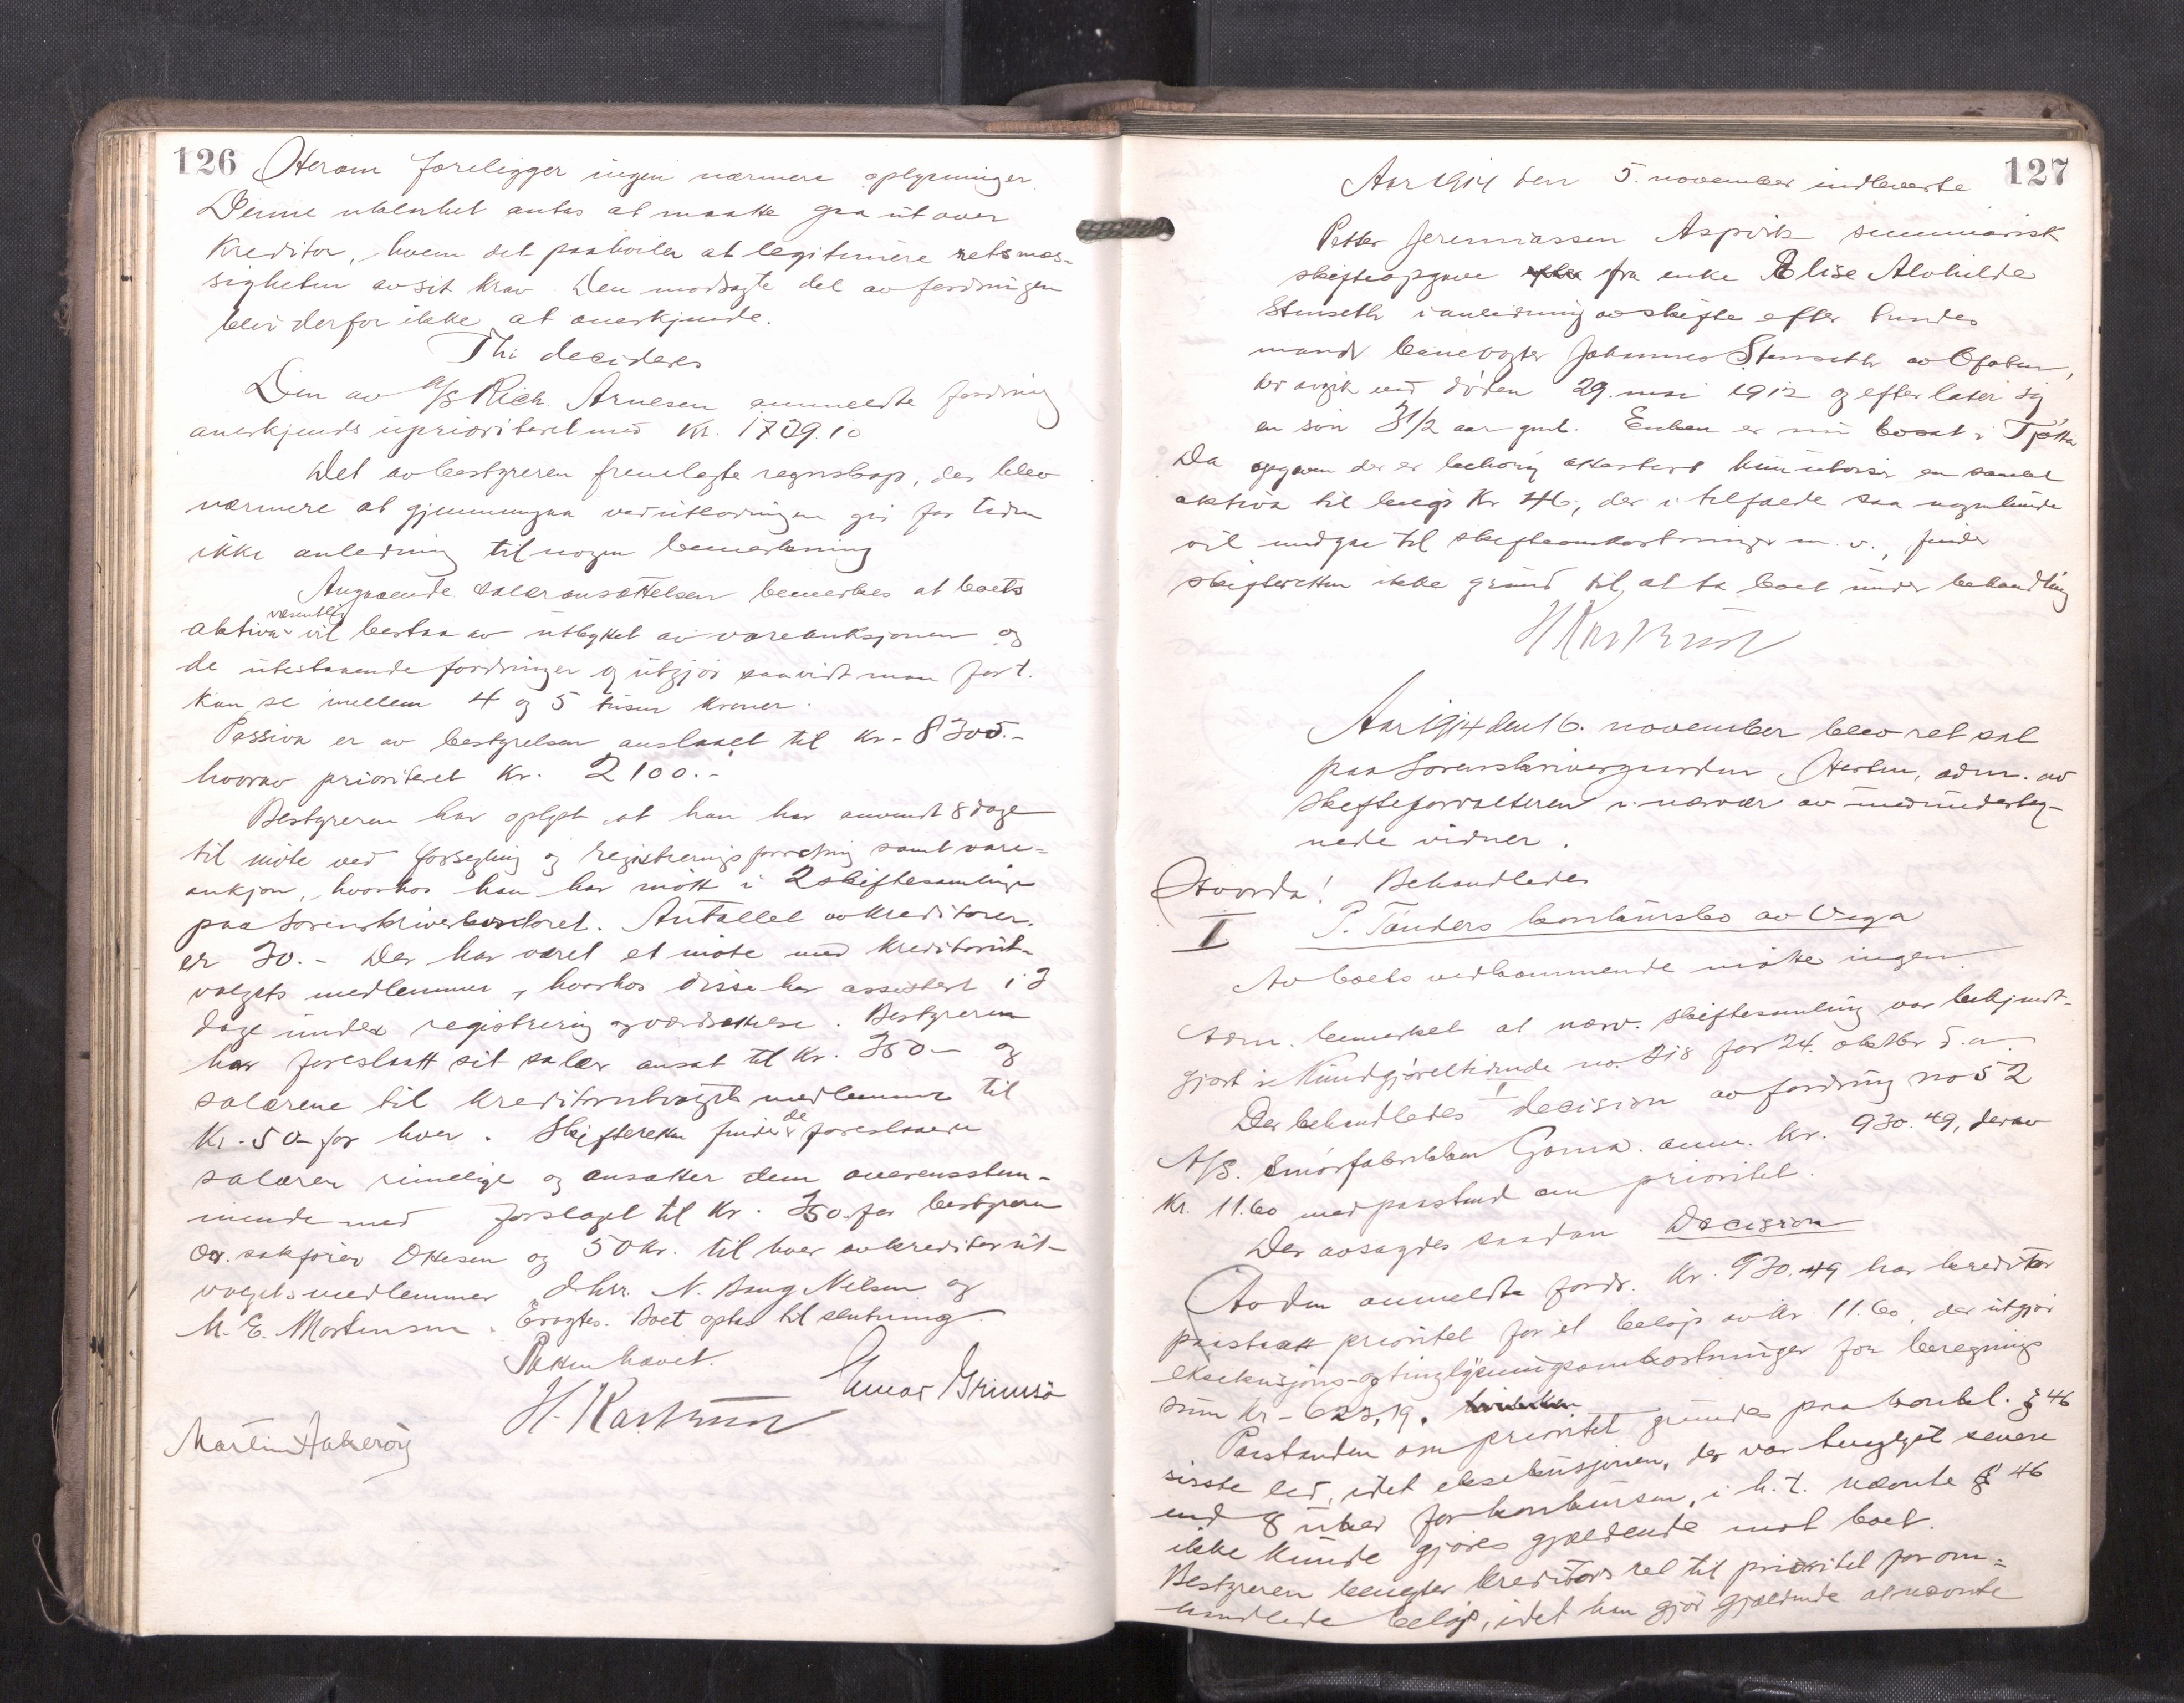 126
Herom foreligger ingen nærmere oplysninger.
Denne uklarhet antas at maatte gaa ut over
kreditor, hvem det paahviler at legitimere retsmæs-
sigheten av sit krav. Den modsagte del av fordringen
blir derfor ikke at anerkjende.
Thi decideres
Den av A/S Rich. Arnesen anmeldte fordring
anerkjendes uprioritert med Kr. 1739.10
Det av bestyreren fremlagte regnskap, der blev
nærmere at gjennemgaa ved utlodningen gir for tiden
ikke anledning til nogen bemerkning
Angaaende salæransættelsen bemerkes at boets
aktiva væsentlig vil bestaa av utbyttet av vareauksjonen og
de utestaaende fordringer og utgjør saavidt man for t.
kan se mellem 4 og 5 tusen kroner.
Passiva er av bestyrelsen anslaaet til Kr. 8300.-
hvorav prioritert Kr. 2100.-
Bestyreren har oplyst at han har anvendt 8 dage
til møte ved forsegling og registreringsforretning samt vare-
auksjon, hvorhos han har møtt i 2 skiftesamlinger
paa sorenskriverkontoret. Antallet av kreditorer
er 30.- Der har været et møte med kreditorut-
valgets medlemmer, hvorhos disse har assistert i 3
dage under registrering og værdsettelse. Bestyreren
har foreslaatt sit salær ansat til Kr. 350- og
salærene til kreditorutvalgets medlemmer til
Kr. 50- for hver. Skifteretten finder de foreslaaede
salærer rimelige og ansætter dem overensstem-
mende med forslaget til Kr. 350 for bestyreren
Or. sakfører Ottesen og 50 Kr. til hver av kreditorut-
valgets medlemmer d'hrr. N. Bang Nilsen og
M. E. Mortensen. Boet optas til slutning.
Retten hævet.
H. Einar Grimsø
Martin Aakerøy
127
Aar 1914 den 5. november indleverte
Petter Jeremiassen Aspvik summarisk
skifteopgave fra enke Elise Alvhilde
Stenseth i anledning av skifte efter hendes
mand banevogter Johannes Stenseth av Ofoten,
der avgik ved døden 29. mai 1912 og efterlater sig
en søn 3 1/2 aar gml. Enken er nu bosat i Tjøtta
Da opgaven der er behørig attestert kun utviser en samlet
aktiva til beløp Kr 146, der i tilfælde saa nogenlunde
vil medgaa til skifteomkostninger m. v., finder
skifteretten ikke grund til at ta boet under behandling
Aar 1914 den 16. november blev ret sat
paa Sorenskrivergaarden, adm. av
skifteforvalteren i nærvær av medunderteg-
nede vidner.
Hvorda! Behandledes
I P. Tanders konkursbo av Vega
Av boets vedkommende møtte ingen
Adm. bemerket at nærv. skiftesamling var bekjendt-
gjort i Kundgjørelstidende no. 318 for 24. oktbr d. a.
Der behandledes I decision av fordring no 52
A/S. Smørfabrikken Goma. anm. Kr. 930.49, derav
Kr. 11.60 med paastand om prioritet.
Der avsagdes saadan Decision
Av den anmeldte fordr. Kr. 930.49 har kreditor
paastaatt prioritet for et beløp av Kr. 11.60, der utgjør
eksekusjons- og tinglysningsomkostninger for beregnings
sum Kr.
Paastanden om prioritet grundes paa konkl. § 46
sisste led, idet eksekusjonen, der var tinglyst senere
end 8 uker før konkursen, i h. t. nævnte § 46
ikke kunde gjøres gjældende mot boet.
Bestyreren benegter kreditors ret til prioritet for om-
handlede beløp, idet han gjør gjældende at nævnte